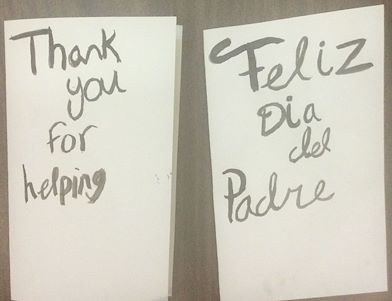 Thank
you
for
helping
Feliz
Dia
del
Padre